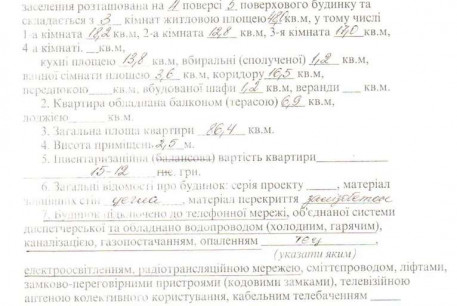 заселення розташована на 4 поверсі 5 поверхового будинку та
складається з 3 кімнат житловою площею кв.м, у тому числі
1-а кімната 18,2 кв.м, 2-а кімната 12,8 кв.м, 3-я кімната 17,0 кв.м,
4 а кімната кв.м.
кухні площею 13,8 кв.м, вбиральні (сполученої) 1,2 кв.м,
ванної кімнати площею 3,6 кв.м, коридору 10,5 кв.м,
передпокою____кв.м, вбудованої шафи 1,2 кв.м, веранди __ кв.м.
2. Квартира обладнана балконом (терасою) 6,9 кв.м,
лоджією_____кв.м
3. Загальна площа квартири 86,4 кв.м.
4. Висота приміщень 2,5 м.
5. Інвентаризаційна (балансова) вартість квартири________
15-12 грн.
6. Загальні відомості про будинок: серія проекту ____, матеріал
стін цегла, матеріал перекриття залізобетон
7. Будинок підключено до телефонної мережі, об'єднаної системи
диспетчерської та обладнано водопроводом (холодним, гарячим),
каналізацією, газопостачанням, опаленням
(указати яким)
електроосвітленням, радіотрансляційною мережею, сміттєпроводом, ліфтами,
замково-переговорними пристроями (кодовими замками), телевізійною
антеною колективного користування, кабельним телебаченням ____